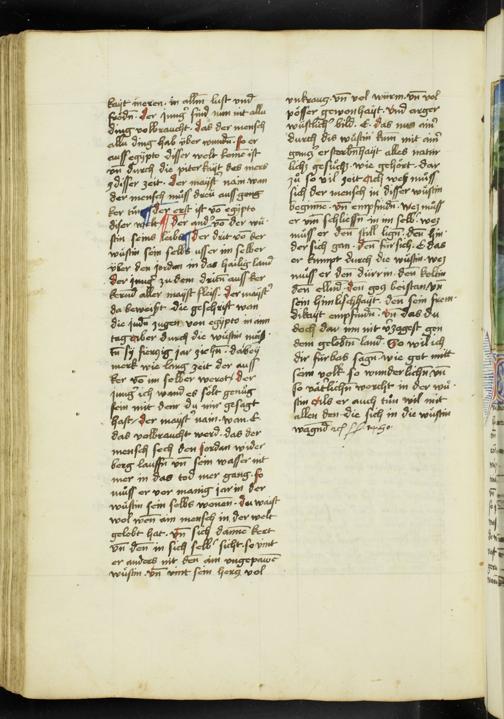 kayt meren · in allem lust vnd
frodn · der Jung sind nun mit allen
ding volbracht · das der mensch
allu ding hab vber wundn · so er
auss egypte disser welt komē ist
vn̄ durch die piterkayt des mers
disser zeit · der mayst nain wan
der mensch müss dreü auss geng
ker tün der erst ist vō egypte
diser welt der and vō der wü
stin seins leibs der drit vō der
wüstin sein selbs vsser im selber
vber den Jordan in das hailig land
der Jung zu dem dritn auss ker
kernd aller mayst fleiss · der mayst
da beweist die geschrift wan
die Judn zugen von egypto in ainē
tag aber durch die wüstin müss
tn̄ sy fierzig Jar ziehn · dabey
merk wie lang zeit der auss
ker vō im selber weret der
Jung ich wand es solt genüg
sein mit dem du mir gesagt
hast · der mayst nain · wan E
das volbracht werd · das der
mensch sech den Jordan wider
berg lauffn vn̄ sein wasser nit
mer in das tod mer gang · so
müss er vor manig Jar in der
wüstin sein selbs wonen · du waist
wol wen ain mensch in der welt
gelebt hat · vn̄ sich dannē kert
vn̄ den in sich selb sicht · so vint
er anders nit den ain vngepawē
wüstin · vn̄ vint sein herz vol
vnkraug · vn̄ vol würm · vn̄ vol
posser gewonhayt · vnd arger
wüstlich bild · E das nun ainer
durch die wüstin kum mit ainē
gantz ersterbenhayt alles natur
lichs gesuchs wie gehört · dar
zü so vil zeit Sich wess müss
sich der mensch in disser wüstin
beginne · vn̄ empfindn · wess müss
er vin̄ schliessn in im selb · wess
müss er den still lign · den hin
der sich gan · den für sich · E das
er kumpt durch die wüstin · wess
müss er den dürrin · den keltin
den ellnd · den gotz beistan · vn̄
sein himlischhayt · den sein frem
dikayt empfindn · vn̄ das du
doch dar inn nit vzagest gen
dem gelobtn land So wil ich
dir fürbas sagn · wie got mitt
seim volk · so wunderlichn · vn̄
so vätterlichn worcht in der wü
stin als er auch tün wil mit
allen den · die sich in die wüstin
wagnd